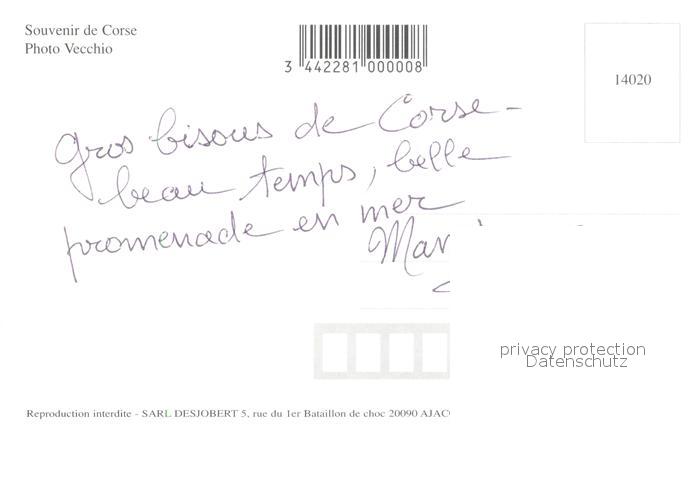 Souvenir de Corse
Photo Vecchio
3 442281 000008
14020
Gros bisous de Corse -
beau temps, belle
promenade en mer
privacy protection
Datenschutz
Reproduction interdite - SARL DESJOBERT 5, rue du 1er Bataillon de choc 20090